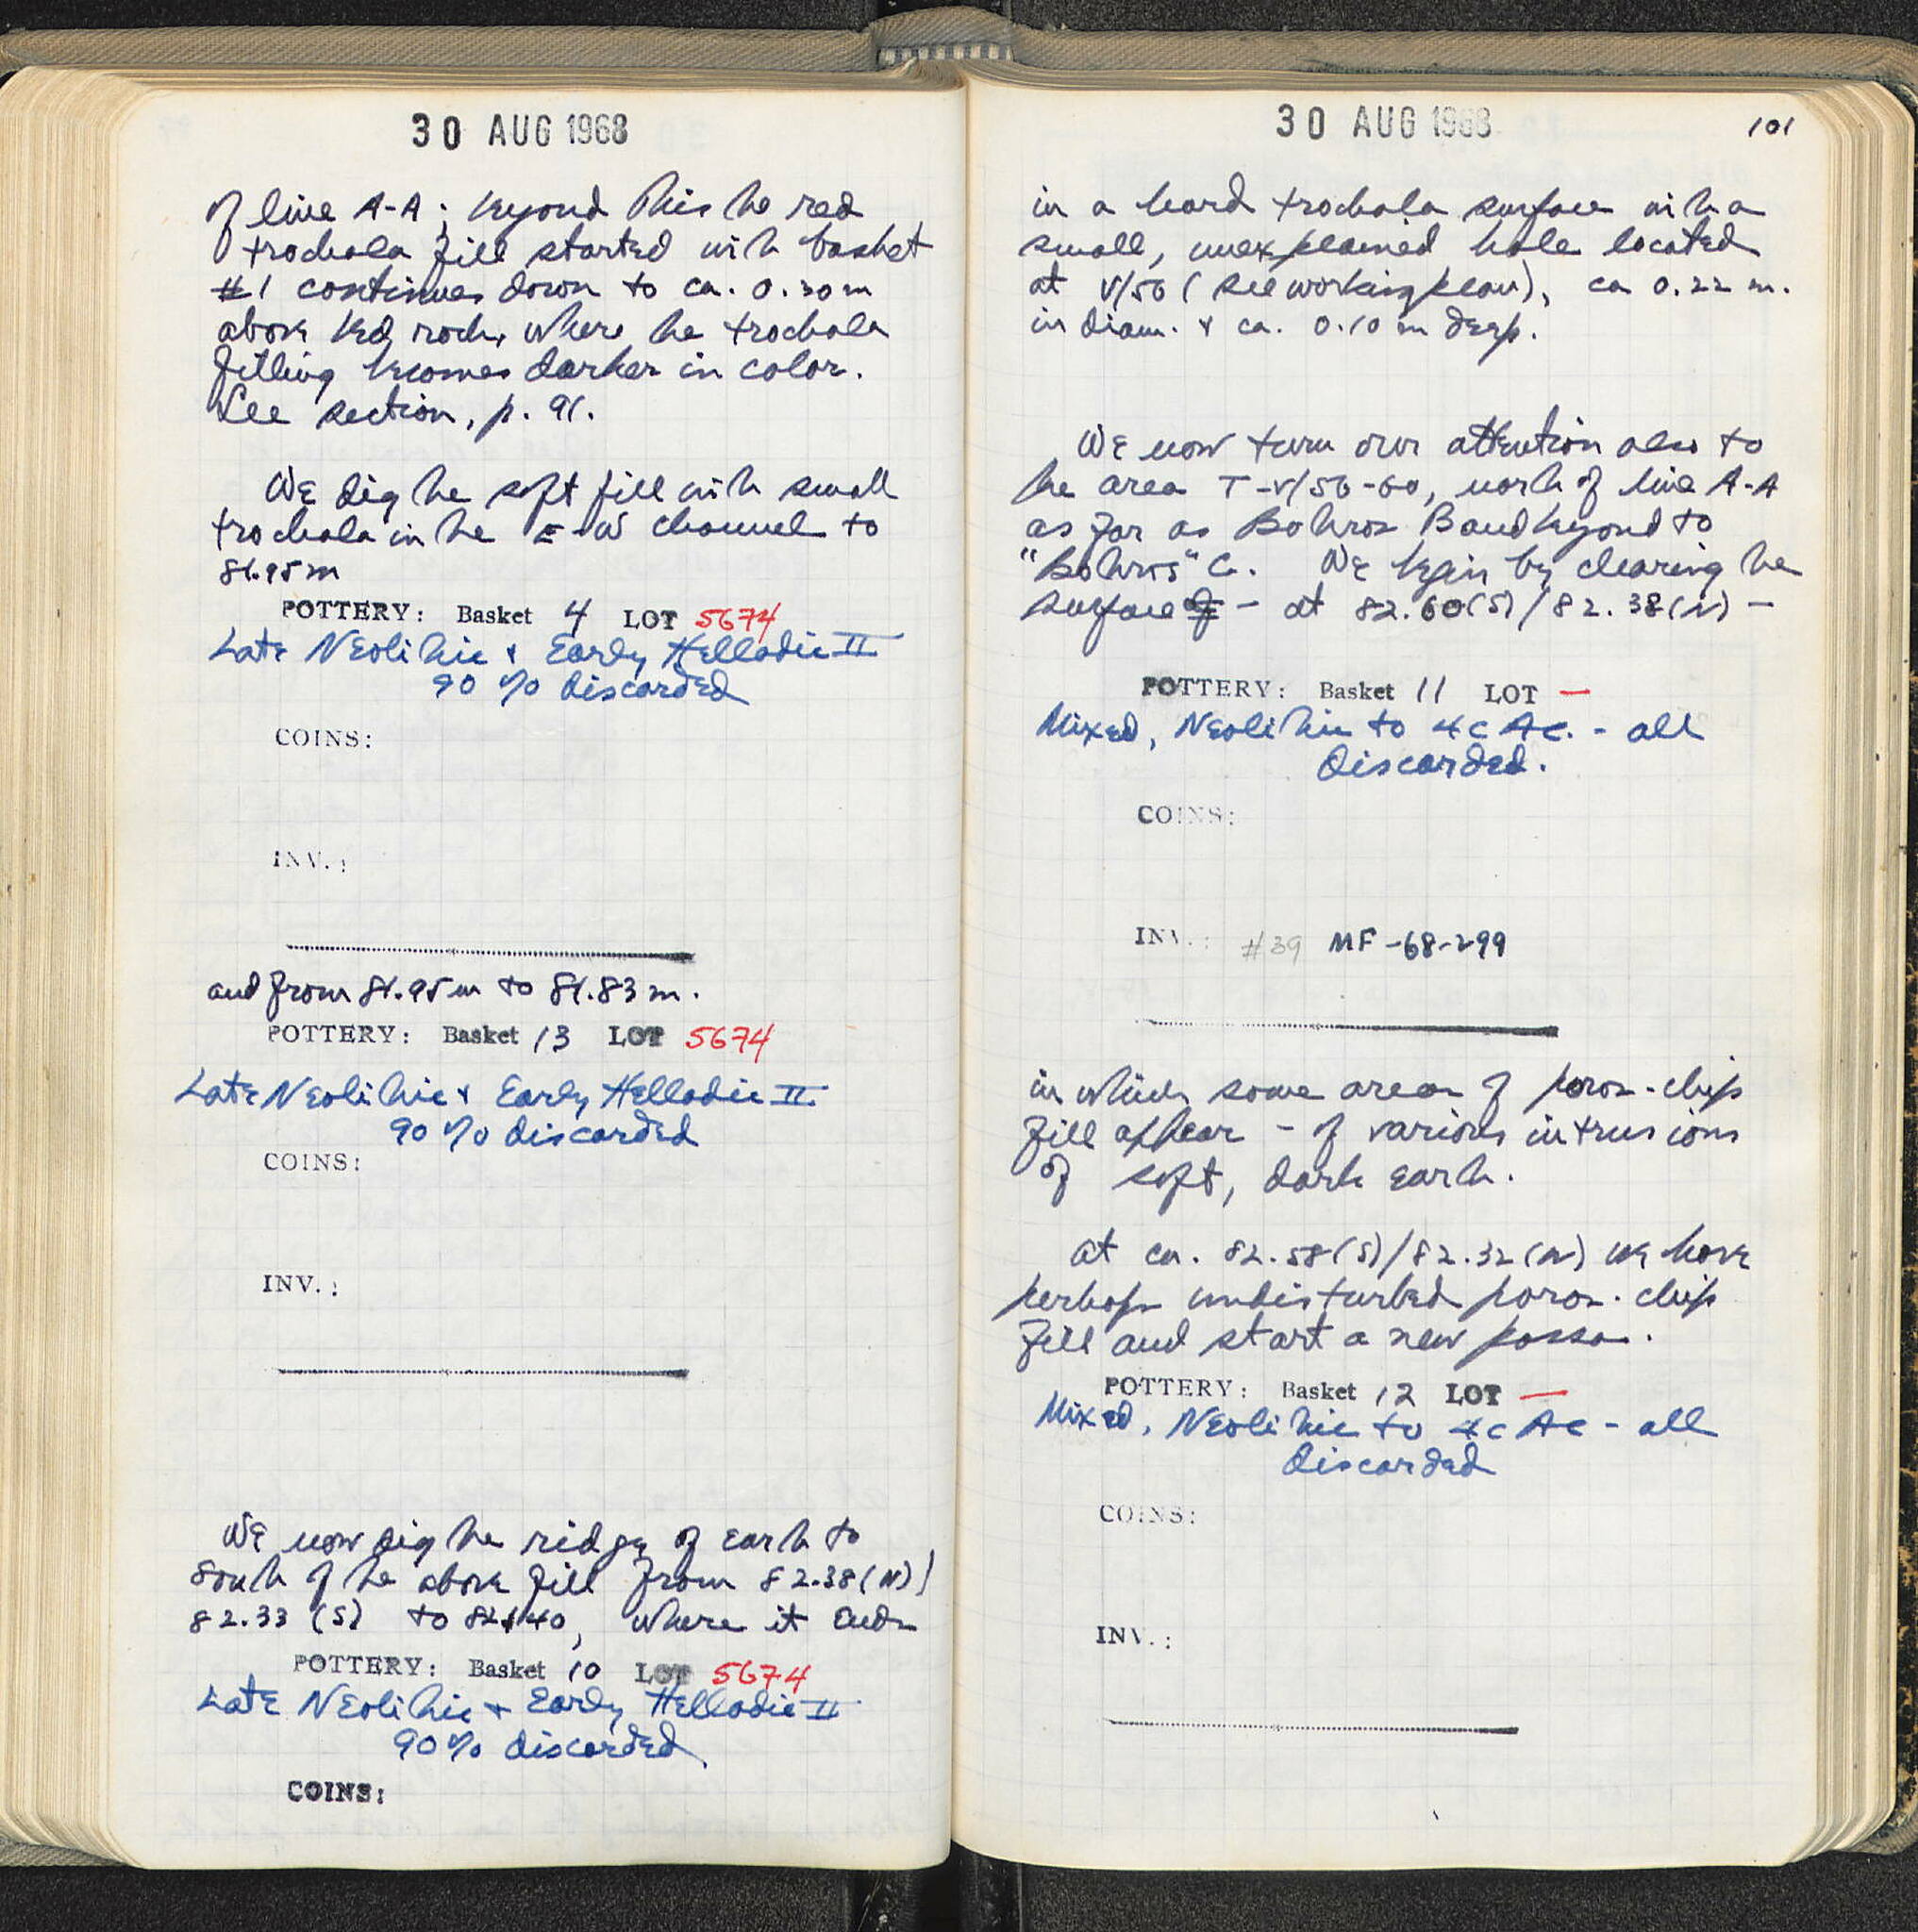 30 AUG 1968
of line A-A; beyond this the red
trochala fill started with basket
#1 continues down to ca. 0.30 m
above bed rock, where the trochala
filling becomes darker in color.
See section, p. 91.
We dig the soft fill with small
trochala in the E-W channel to
81.95 m
POTTERY: Basket 4 LOT 5674
Late Neolithic & Early Helladic II
90 % discarded
COINS:
INV.:
and from 81.95 m to 81.83 m.
POTTERY: Basket 13 LOT 5674
Late Neolithic & Early Helladic II
90 % discarded
COINS:
INV.:
We now dig the ridge of earth to
South of the above fill from 82.38 (N)/
82.33 (S) to 82.40, where it ends
POTTERY: Basket 10 LOT 5674
Late Neolithic & Early Helladic II
90 % discarded
COINS:
30 AUG 1968
101
in a hard trochala surface with a
small, unexplained hole located
at V/56 (see working plan), ca 0.22 m.
in diam. & ca. 0.10 m deep.
We now turn our attention also to
the area T-V/56-60, north of line A-A
as far as Bothros B and beyond to
"Bothros" C. We begin by clearing the
surface of - at 82.60(S)/82.38(N) -
POTTERY: Basket 11 LOT —
Mixed, Neolithic to 4 c AC. - all
discarded.
COINS:
INV.: #39 MF-68-299
in which some areas of poros-chip
fill appear - of various intrusions
of soft, dark earth.
at ca. 82.58(S)/82.32(N) we have
perhaps undisturbed poros-chip
fill and start a new passa.
POTTERY: Basket 12 LOT —
Mixed, Neolithic to 4 c AC - all
discarded
COINS:
INV.: